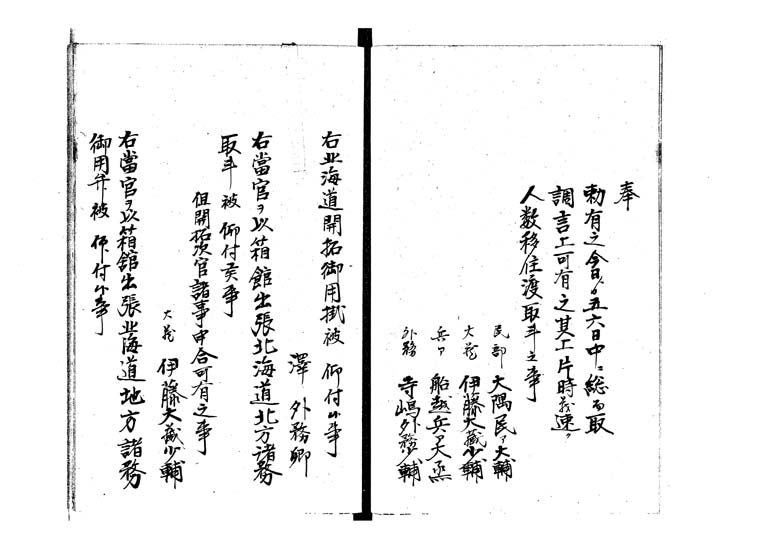 奉
勅有之今日ゟ五六日中ニ総而取
調言上可有之其上片時茂速ク
人数移住渡取斗之事
民部 大隅民ア大輔
大蔵 伊藤大蔵少輔
兵ア 船越兵ア大丞
外務 寺嶋外務少輔
右北海道開拓御用掛被 仰付候事
澤 外務卿
右當官ヲ以箱館出張北海道北方諸務
取斗被 仰付候事
但開拓次官諸事申合可有之事
大蔵 伊藤大蔵少輔
右當官ヲ以箱舘出張北海道地方諸務
御用弁被 仰付候事